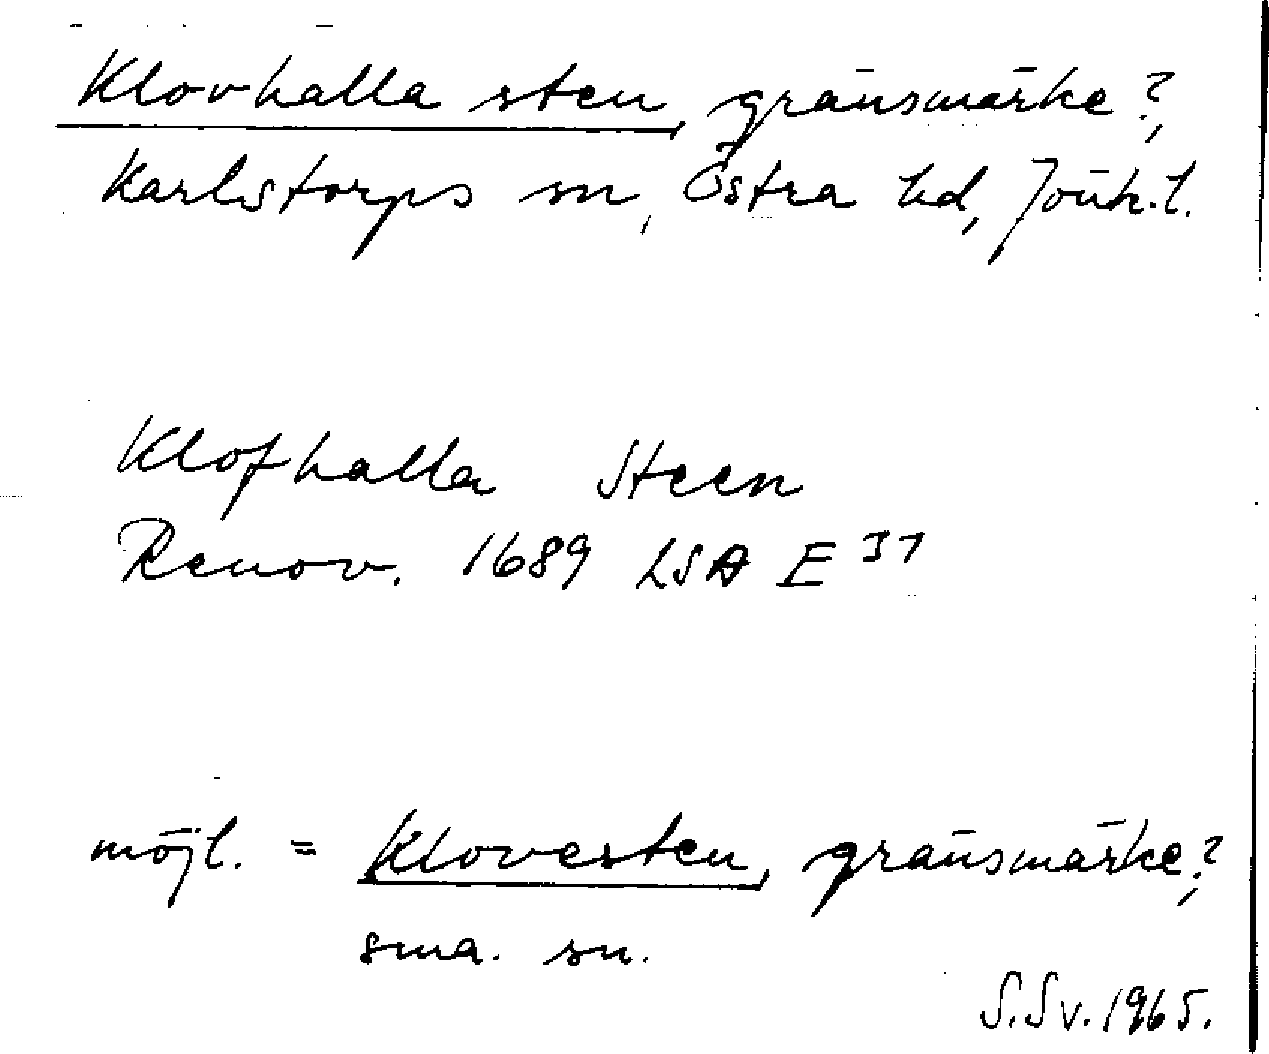 Klovhalla sten, gränsmärke?,
Karlstorps sn, Östra hd, Jönk. l.
Klofhalla Steen
Renov. 1689 LSA E 37
möjl. = Klovesten, gränsmärke?,
sma. sn.
S. Sv. 1965.